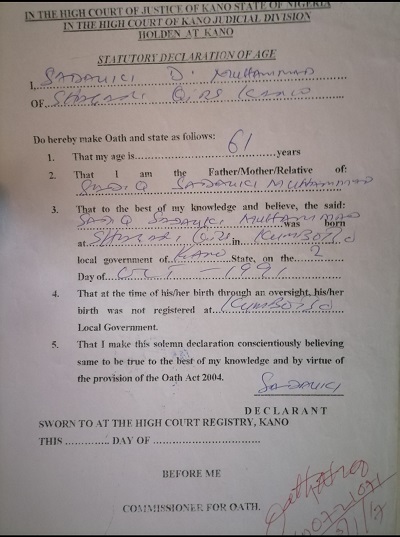 IN THE HIGH COURT OF JUSTICE OF KANO STATE OF NIGERIA
IN THE HIGH COURT OF KANO JUDICIAL DIVISION
HOLDEN AT KANO
STATUTORY DECLARATION OF AGE
I, SADAUKI D. MUHAMMAD
OF SHAGARI QTRS KANO
Do hereby make Oath and state as follows:
1. That my age is 61 years
2. That I am the Father/Mother/Relative of:
SADIQ SADAUKI MUHAMMAD
3. That to the best of my knowledge and believe, the said:
SADIQ SADAUKI MUHAMMAD was born
at SHAGARI QTRS in KUMBOTSO
local government of KANO State, on the 2
Day of OCT - 1991
4. That at the time of his/her birth through an oversight, his/her
birth was not registered at KUMBOTSO
Local Government.
5. That I make this solemn declaration conscientiously believing
same to be true to the best of my knowledge and by virtue of
the provision of the Oath Act 2004.
SADAUKI
DECLARANT
SWORN TO AT THE HIGH COURT REGISTRY, KANO
THIS ............. DAY OF ..............................
BEFORE ME
COMMISSIONER FOR OATH.